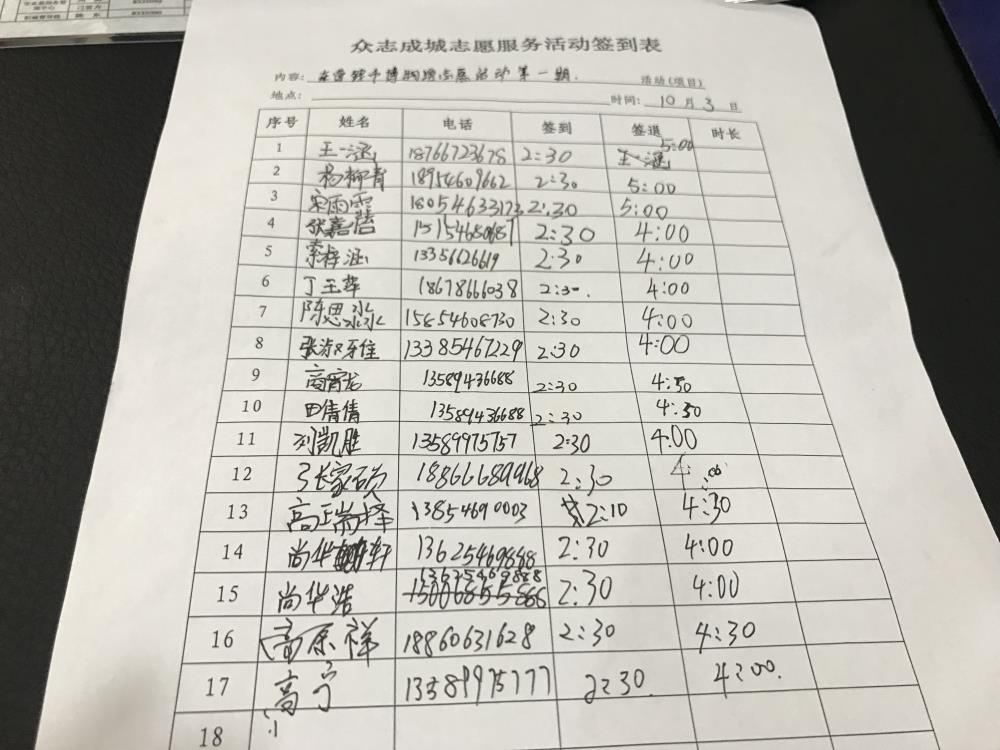 众志成城志愿服务活动签到表
内容: 志愿活动第一期. 活动(项目)
地点: 时间: 10月3日
序号 姓名 电话 签到 签退 时长
1 王一涵 18766723678 2:30 王一涵 5:00
2 杨柳青 18954609662 2:30 5:00
3 宋雨霏 18054633173 2:30 5:00
4 张嘉蓓 15154680687 2:30 4:00
5 索梓涵 13356126619 2:30 4:00
6 丁玉苹 18678666038 2:30. 4:00
7 陈思淼 15854608730 2:30 4:00
8 张淑雅佳 13385467229 2:30 4:00
9 高 13589436688 2:30 4:50
10 田倩倩 13589436688 2:30 4:50
11 刘凯胜 13589975757 2:30 4:00
12 张家硕 18866689968 2:30 4:00
13 高瑞择 13854690003 2:10 4:30
14 尚华轩 13625469888 2:30 4:00
15 尚华浩 13625469888 15006855866 2:30 4:00
16 高原祥 18860631628 2:30 4:30
17 高宁 13589975777 2:30. 4:00.
18